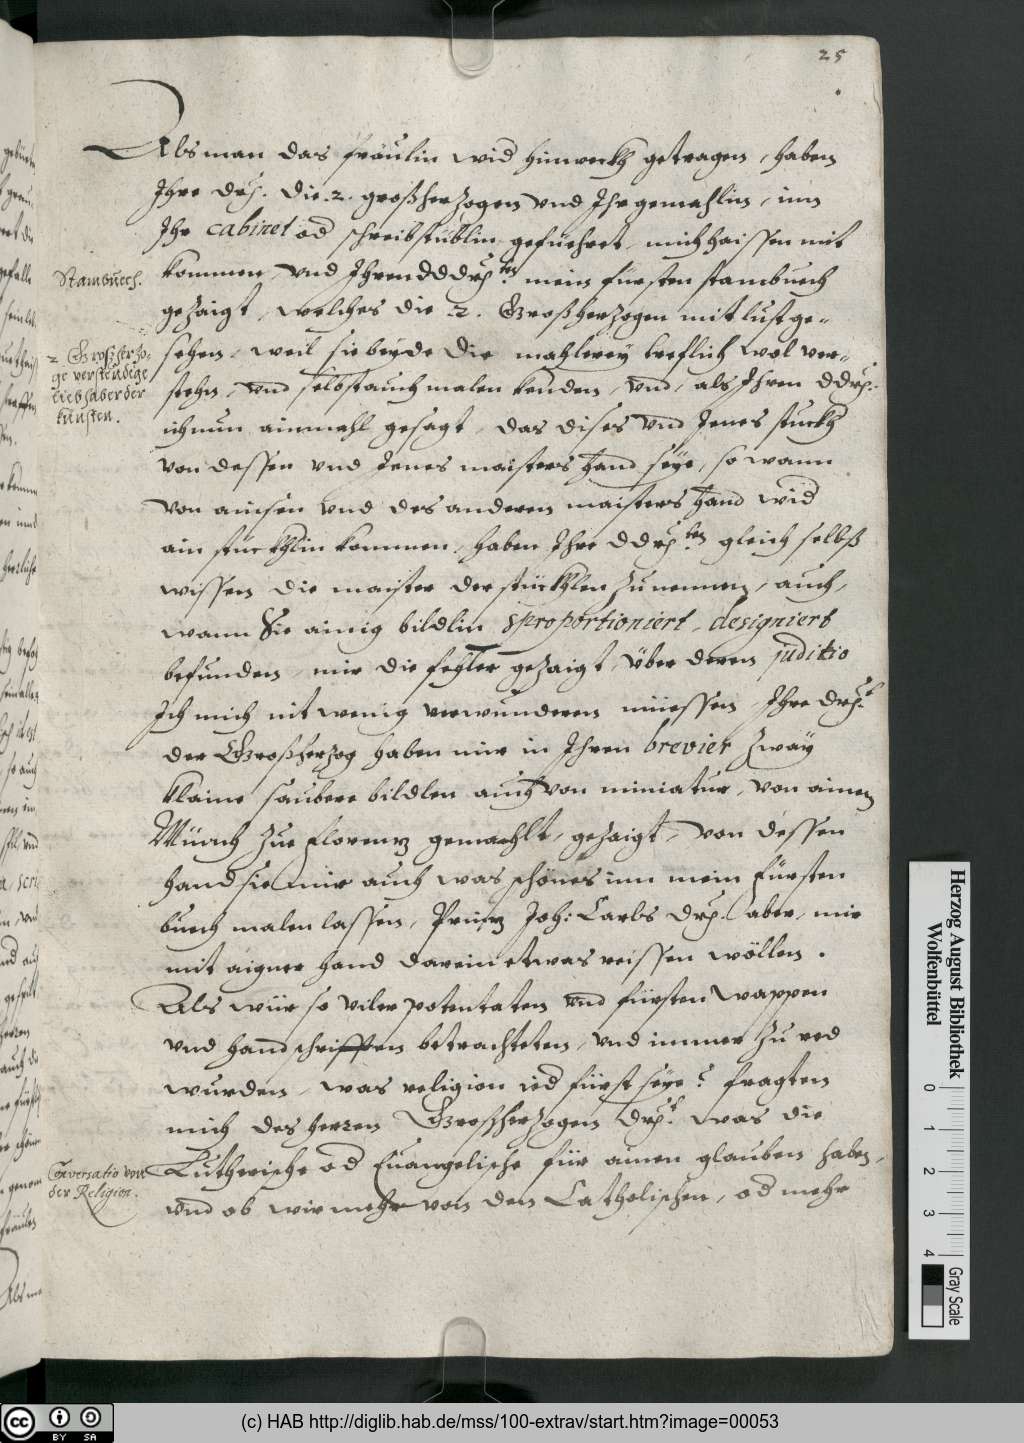 25
Als man das fräulin wid hinweckh getragen, haben
Ihre drh. die .2. großherzogen vnd Ihr gemahlin, inn
Ihr cabinet od schreibstüblin gefüehret, mich haissen mit
kommen, vnd Ihren dddrh.ten mein fürsten stambuech
gezaigt, welches die .2. Großherzogen mit lust ge=
sehen, weil sie beyde die mahlerey trefflich wol ver=
stehn, vnd selbst auch malen kenden, vnd, als Ihren ddrh.
ich nun ainmahl gesagt, das dises vnd Jenes stuckh
von dessen vnd Jenes maisters hand seye, so wann
von aines vnd des anderen maisters hand wid
ain stückhlin kommen, haben Ihre ddrh.ten gleich selbst
wissen die maister der stückhlen zu nennen, auch,
wann Sie ainig bildlin sproportioniert, designiert
befunden, mir die fehler gezaigt, über deren juditio
Ich mich nit wenig verwunderen müessen, Ihre drh.t
der Großherzog haben mir in Ihren brevier zway
klaine saubere bildlen auch von miniatur, von ainem
Münch zue florentz gemachlt, gezaigt, von dessen
hand sie mir auch was schönes inn mein fürsten
buech malen lassen, Printz Joh: Carls drh. aber, mir
mit aigner hand darein etwas reissen wöllen.
Als wür so viler potentaten vnd fürsten wappen
vnd handschrifften betrachteten, vnd immer zu red
wurden, was religion ied fürst seye? fragten
mich des herren Grossherzogen drh.t was die
Lutherische od Euangelische für ainen glauben haben,
vnd ob wir mehr von den Catholischen, od mehr
Stambuech.
2 Großherzo=
ge verständige
liebhaber der
künsten.
Conversatio von
der Religion.
Herzog August Bibliothek
Wolfenbüttel
0 1 2 3 4
Gray Scale
cc BY SA
(c) HAB http://diglib.hab.de/mss/100-extrav/start.htm?image=00053